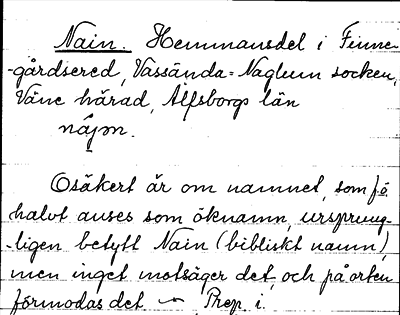 Nain. Hemmansdel i Finne-
-gårdsered, Vassända-Naglum socken,
Väne härad, Älfsborgs län
najon.
Osäkert är om namnet, som på
halvt anses som öknamn, ursprung-
-ligen betytt Nain (bibliskt namn),
men inget motsäger det, och på orten
förmodas det. ~ Prep. i.